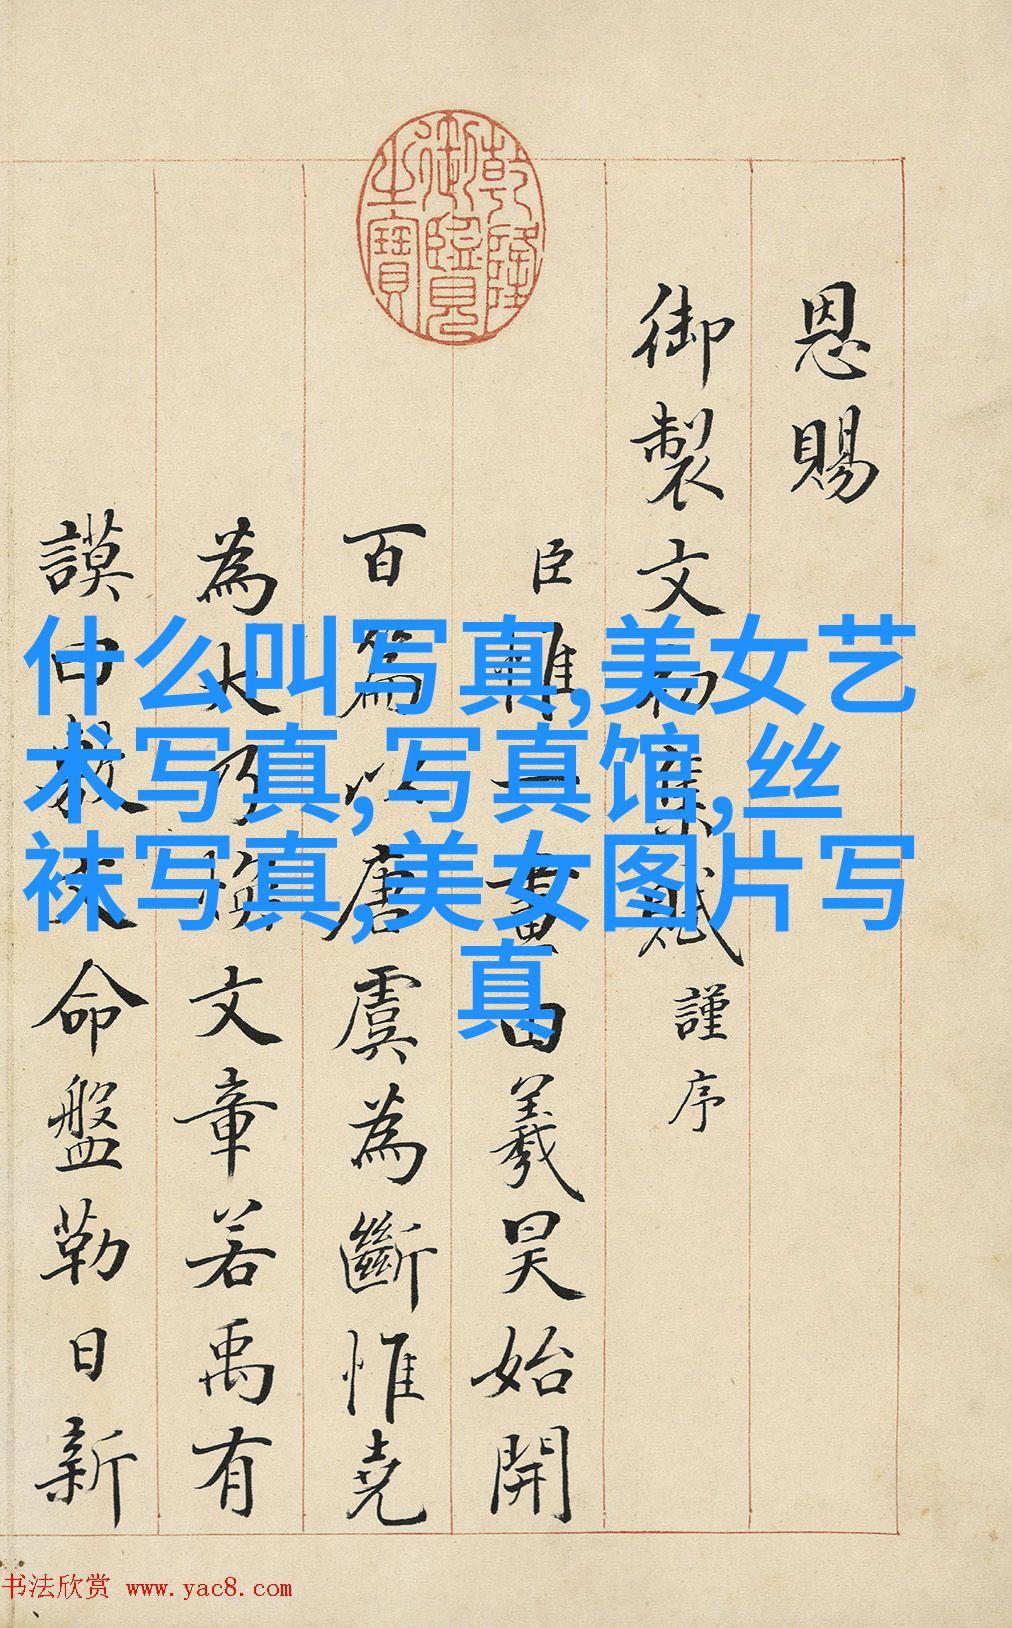 乾隆
御覽
之寶
恩賜
御製文初集賦謹序
臣一畫由羲昊始開
百篇以唐虞為斷惟堯
為大乃煥文章若禹有
謨曰敷文命盤勒日新
什么叫写真,美女艺
术写真,写真馆,丝
袜写真,美女图片写
真
书法欣赏 www.yac8.com